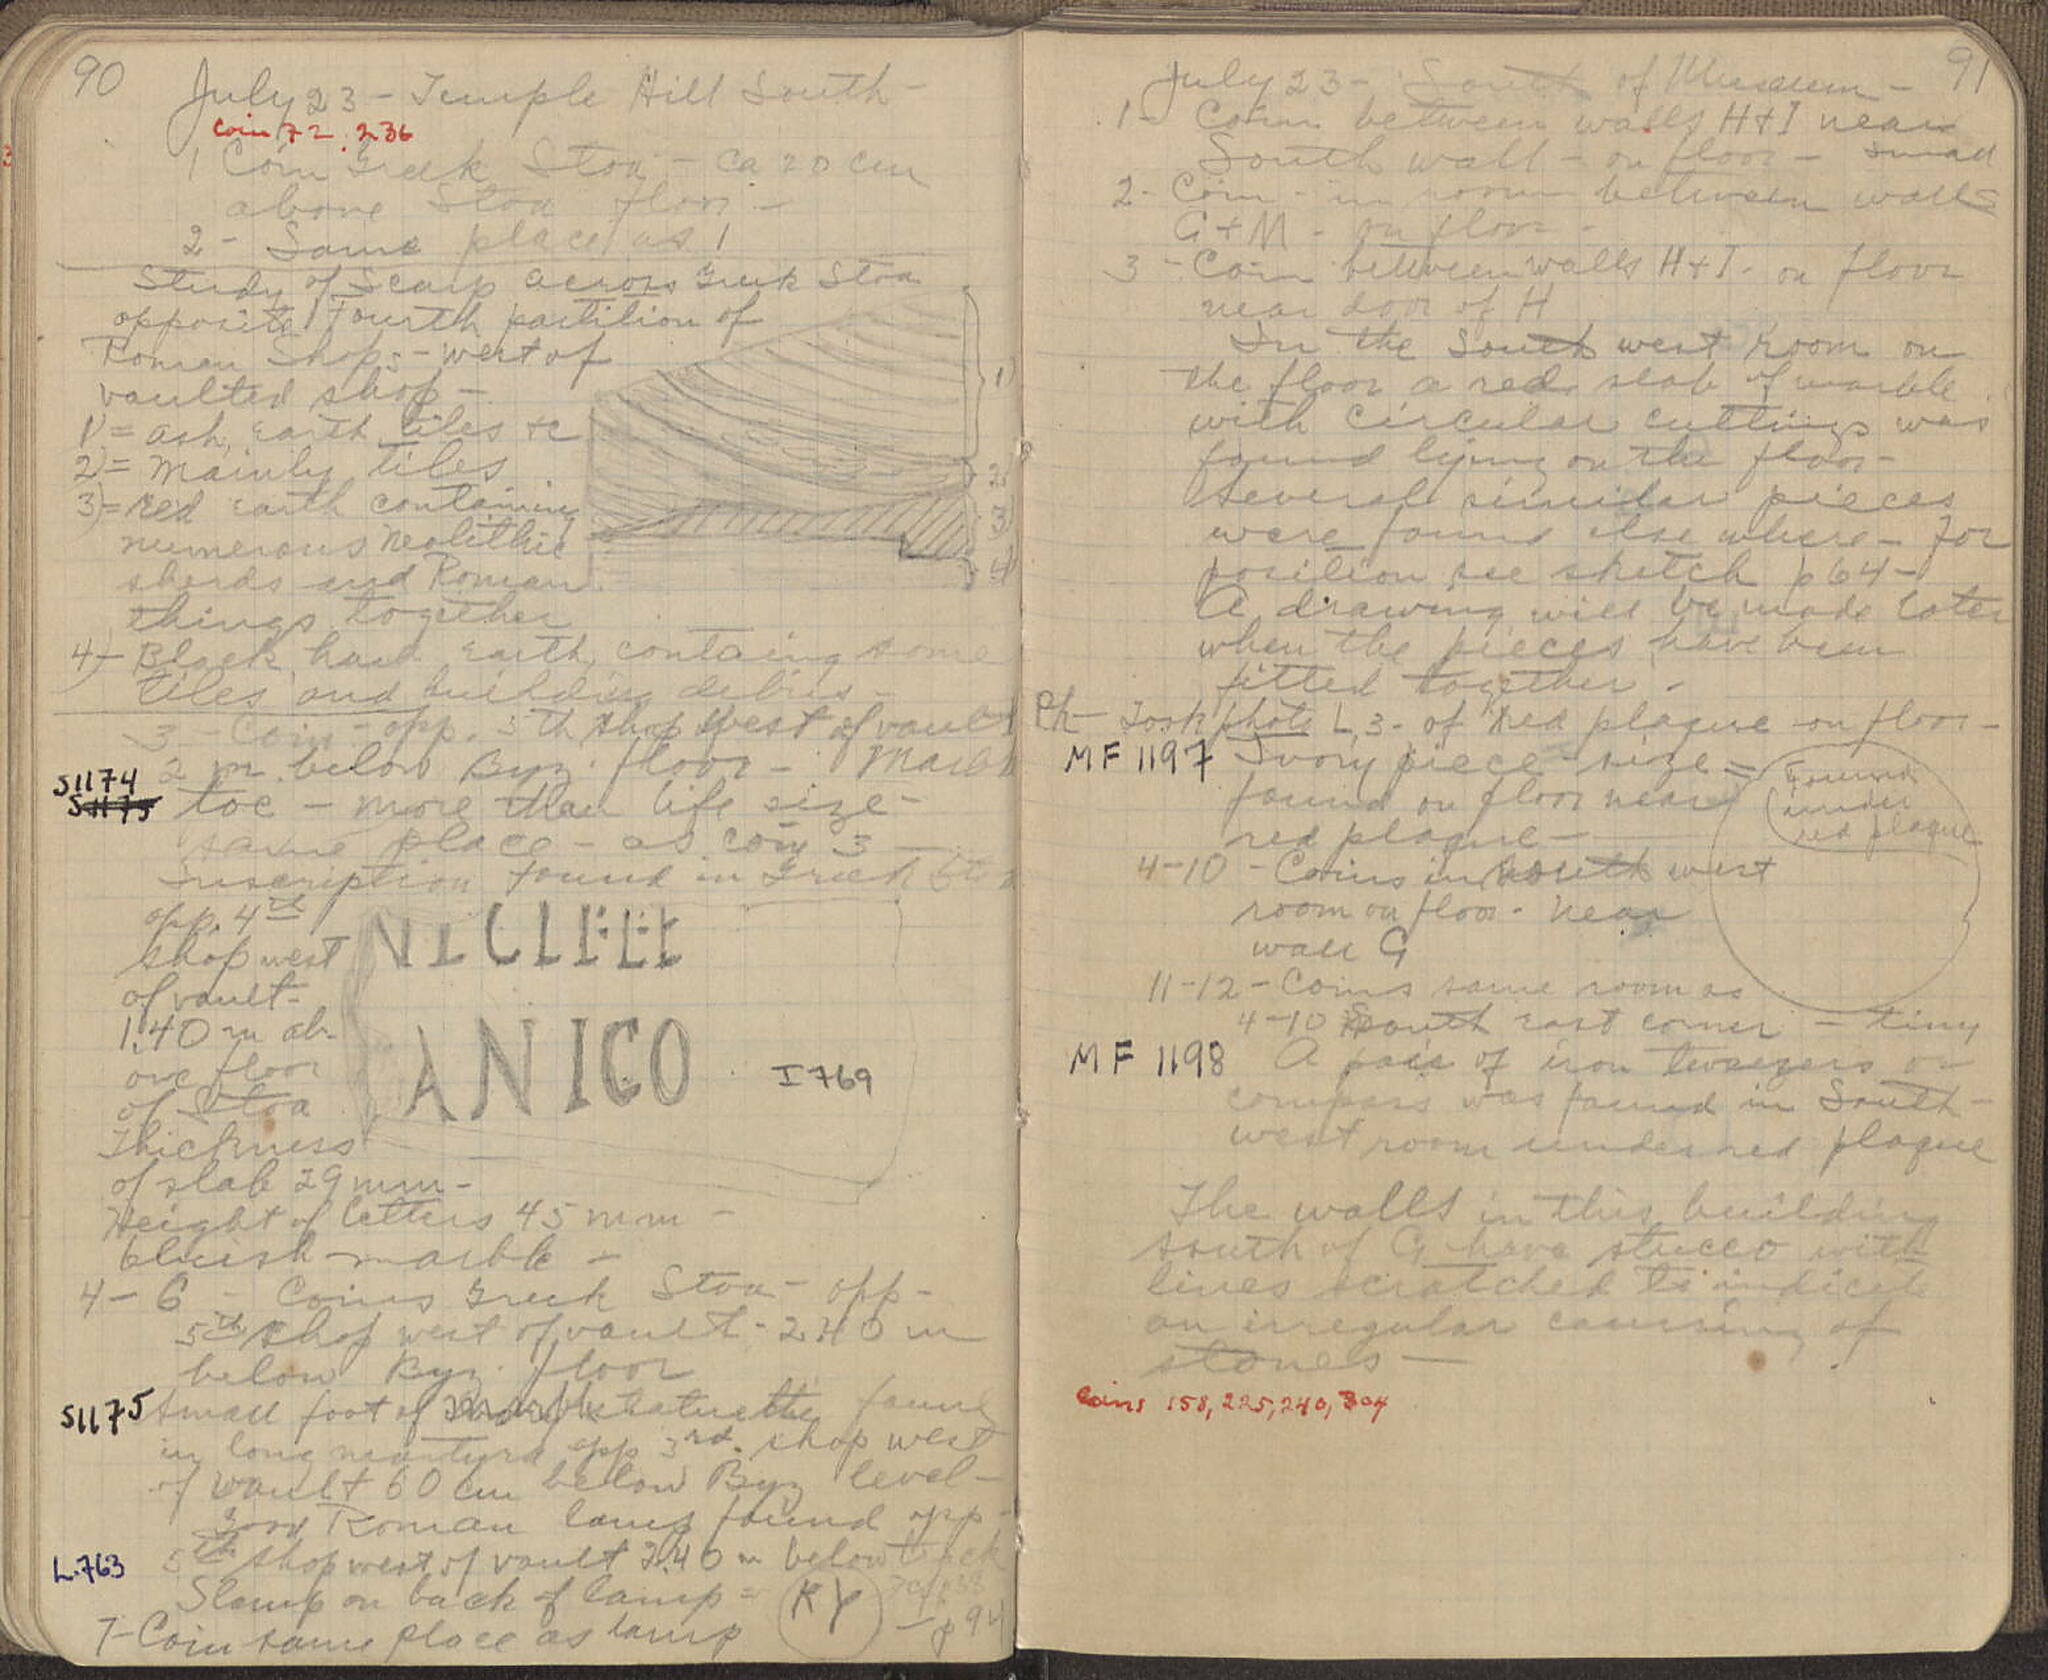 90
July 23 - Temple Hill South -
coin 72. 236
1 Coin Greek Stoa - ca 20 cm
above Stoa floor -
2 - Same place as 1
Study of Scarp across Greek Stoa
opposite fourth partition of
Roman Shops - west of
vaulted shop -
1) = ash, earth tiles etc
2) = mainly tiles
3) = red earth containing
numerous neolithic
sherds and Roman
things together
4) - Black hard earth containg some
tiles and building debris -
1)
2)
3)
4)
3 - Coin - opp. 5th shop west of vault
2 m below Byz. floor - Marble
S1174
S1175 toe - more than life size -
same place - as coin 3 -
Inscription found in Greek
opp. 4th
shop west
of vault -
1.40 m ab-
ove floor
of Stoa
Thickness
of slab 29 mm -
Height of letters 45 mm -
bluish marble -
ANICO
I 769
4 - 6 - Coins Greek Stoa - opp -
5th shop west of vault - 2.40 m
below Byz. floor
S1175 Small foot of statuette found
in long opp 3rd shop west
of vault 60 cm below Byz level -
Good Roman lamp found opp -
L.763 5th shop west of vault 2.40 m below
Stamp on back of lamp = KY
7 - Coin same place as lamp - p 94
91
July 23 - South of Museum -
1 - Coin between walls H + I near
South wall - on floor - small
2 - Coin - in room between walls
G + M - on floor -
3 - Coin between walls H + I - on floor
near door of H
In the South west room on
the floor a red slab of marble
with circular cuttings was
found lying on the floor -
Several similar pieces
were found else where - For
position see sketch p 64 -
A drawing will be made later
when the pieces have been
fitted together -
Ph - Took photo L, 3 - of red plaque on floor -
MF 1197 Ivory piece - size =
found on floor near
red plaque -
Found
under
red plaque
4-10 - Coins in south west
room on floor - near
wall G
11-12 - Coins same room as
4-10 South east corner - tiny
MF 1198 A pair of iron tweezers or
compass was found in South -
west room under red plaque
The walls in this building
south of G have stucco with
lines scratched to indicate
an irregular coursing of
stones -
Coins 158, 225, 240, 304